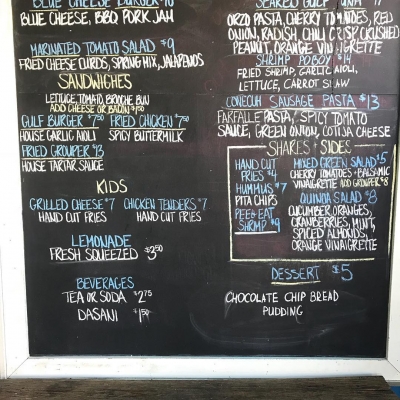 BLUE CHEESE BURGER
BLUE CHEESE, BBQ PORK JAM
MARINATED TOMATO SALAD $9
FRIED CHEESE CURDS, SPRING MIX, JALAPENOS
SANDWICHES
LETTUCE, TOMATO, BRIOCHE BUN
ADD CHEESE OR BACON
GULF BURGER $7.50
HOUSE GARLIC AIOLI
FRIED CHICKEN $7.50
SPICY BUTTERMILK
FRIED GROUPER $13
HOUSE TARTAR SAUCE
KIDS
GRILLED CHEESE $7
HAND CUT FRIES
CHICKEN TENDERS $7
HAND CUT FRIES
LEMONADE
FRESH SQUEEZED $3.50
BEVERAGES
TEA OR SODA $2.75
DASANI $1.50
SEARED GULF TUNA
ORZO PASTA, CHERRY TOMATOES, RED
ONION, RADISH, CHILI CRISP, CRUSHED
PEANUT, ORANGE VINAIGRETTE
SHRIMP POBOY $14
FRIED SHRIMP, GARLIC AIOLI,
LETTUCE, CARROT SLAW
CONECUH SAUSAGE PASTA $13
FARFALLE PASTA, SPICY TOMATO
SAUCE, GREEN ONION, COTIJA CHEESE
SHARES & SIDES
HAND CUT
FRIES $4
HUMMUS $7
PITA CHIPS
PEEL & EAT
SHRIMP $9
MIXED GREEN SALAD $5
CHERRY TOMATOES • BALSAMIC
VINAIGRETTE ADD GROUPER $8
QUINOA SALAD $8
CUCUMBER, ORANGES,
CRANBERRIES, MINT,
SPICED ALMONDS,
ORANGE VINAIGRETTE
DESSERT $5
CHOCOLATE CHIP BREAD
PUDDING